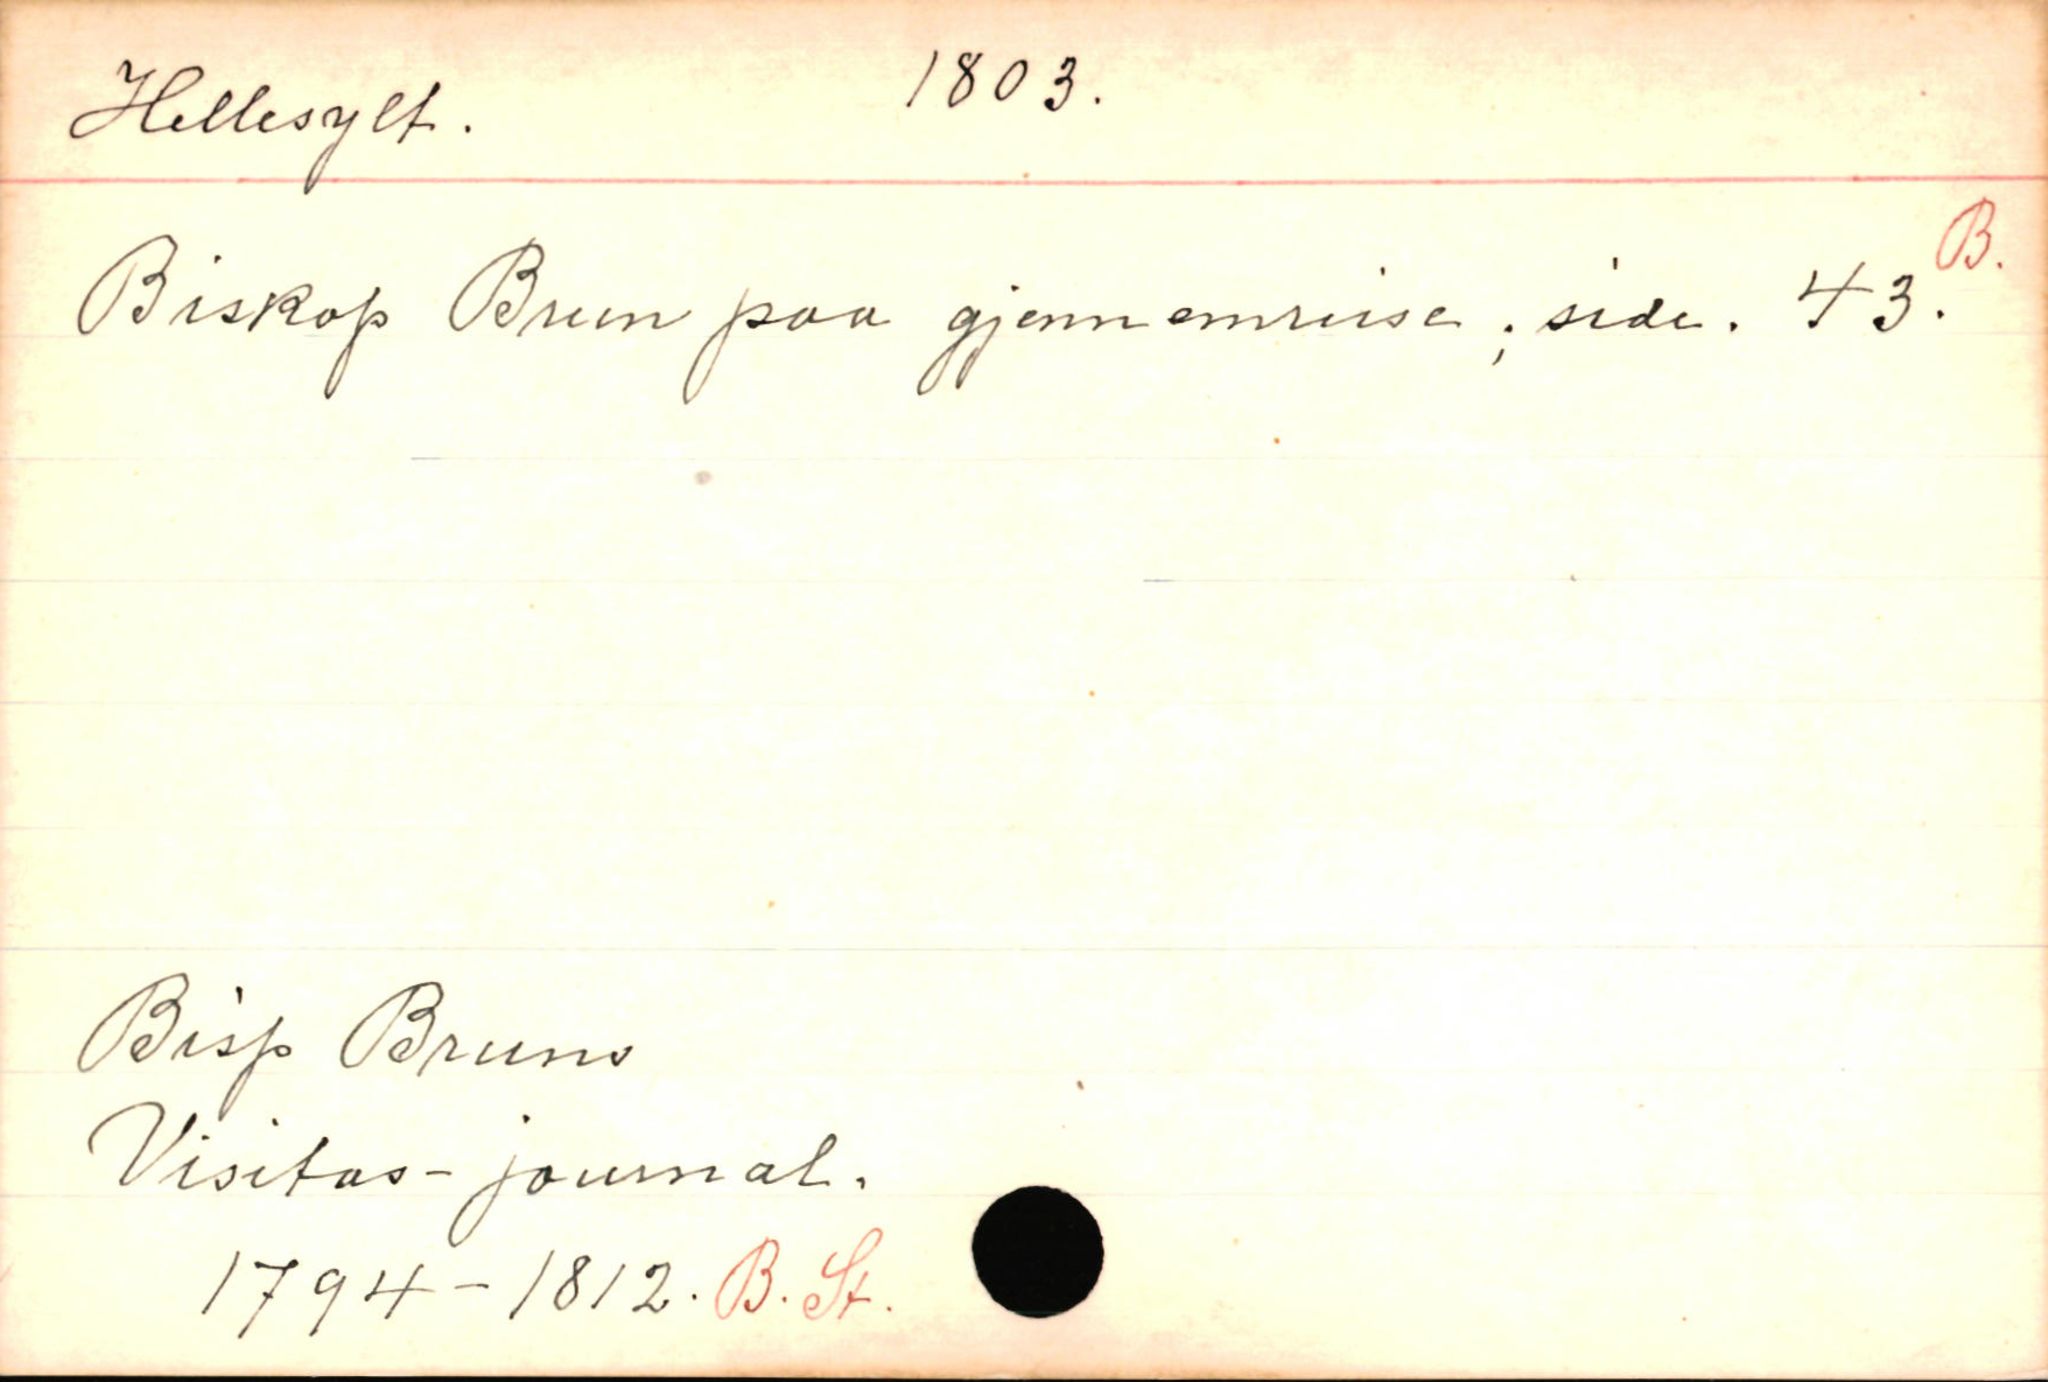 Hellesylt. 1803.
Biskop Brun paa gjennemreise; side. 43. B.
Bisp Bruns
Visitas-journal.
1794-1812. B. St.